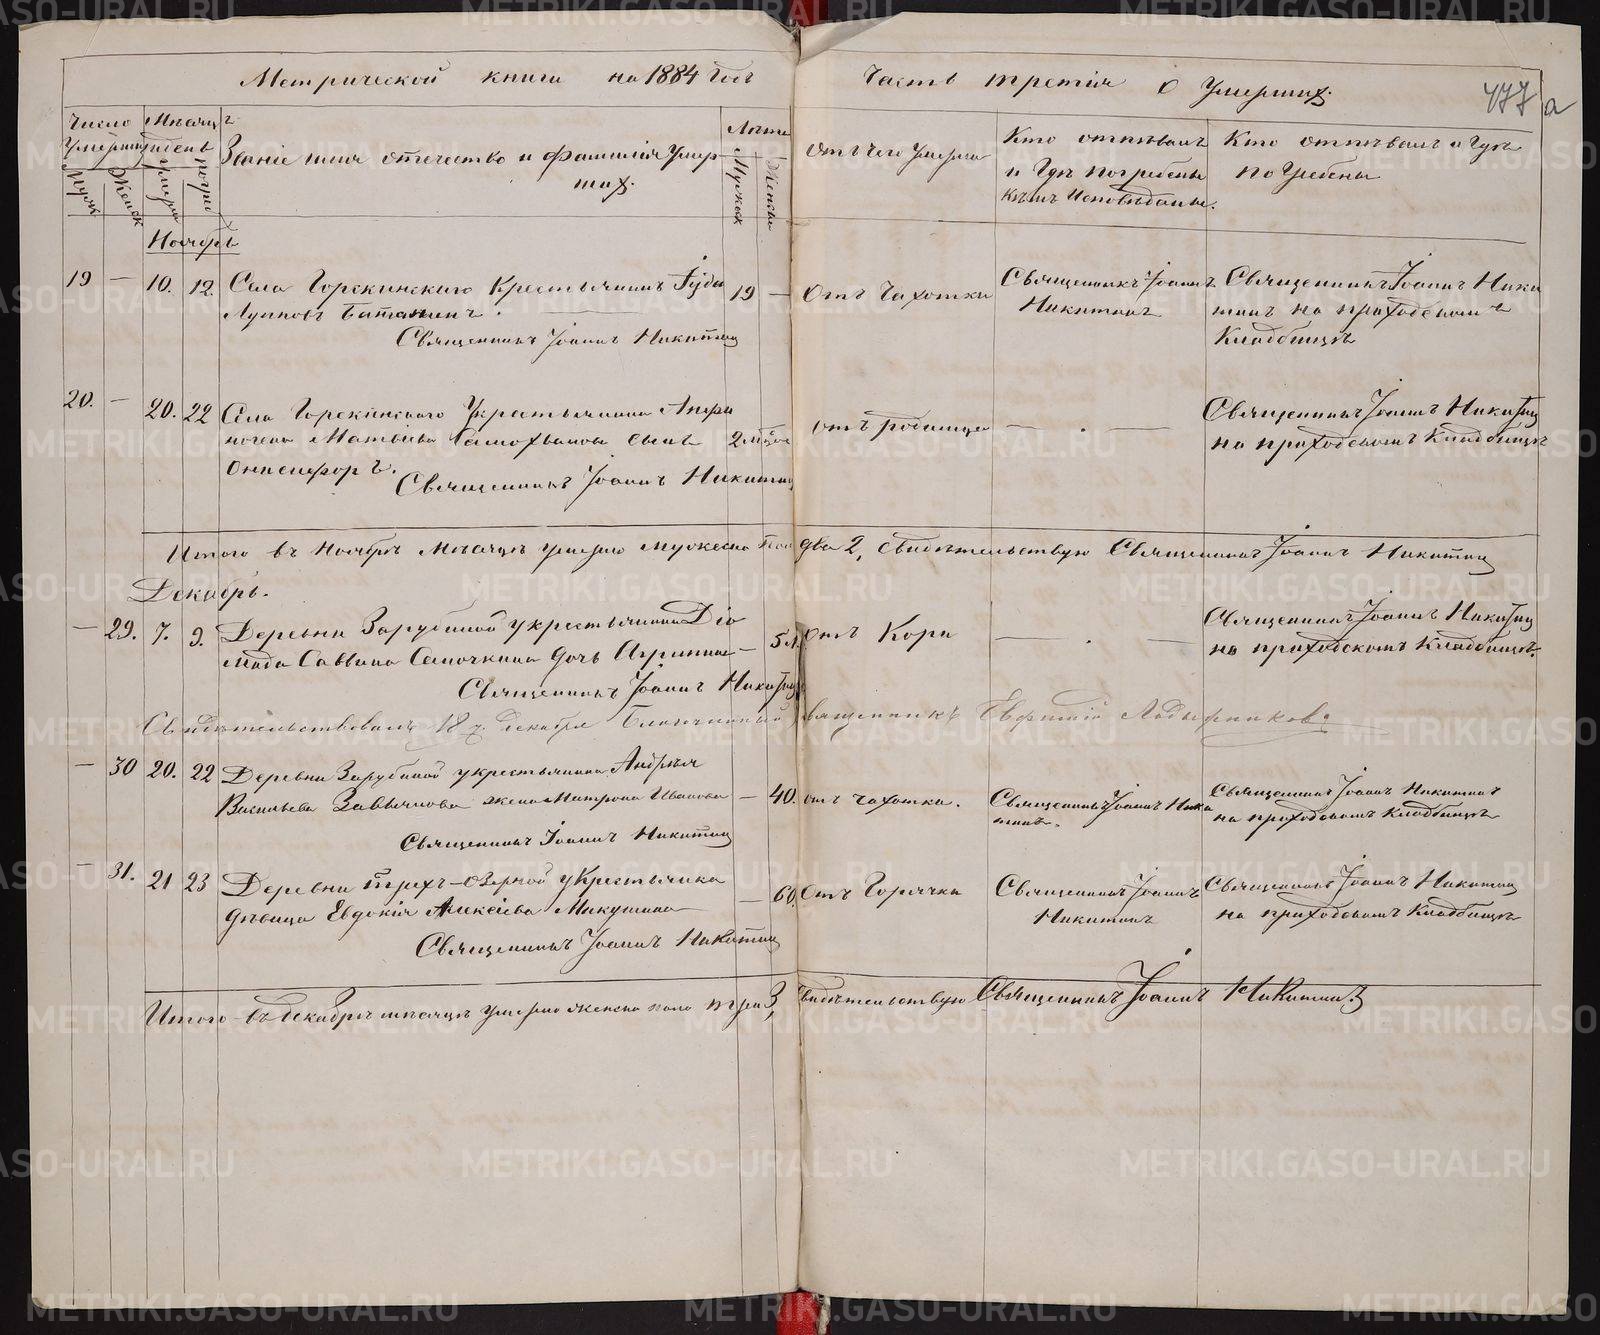 Метрической книги на 1884 Годъ
Часть третія о Умершихъ
477 а
Число Умершихъ
Мужск
Женск
Мѣсяцъ и день
Умерш
погреб
Званіе имя отечество и фамилія Умер
шихъ.
Лѣта
Мужска
Женска
Отъ чего Умерли
Кто отпѣвалъ
и Гдѣ погребены
кѣмъ Исповѣданы.
Кто отпѣвалъ и Гдѣ
погребены
Ноябрь
19 — 10. 12. Села Горскинскаго Крестьянинъ Іуда
Лупповъ
Священникъ Іоаннъ Никитинъ
19 —
Отъ Чахотки
Священникъ Іоаннъ
Никитинъ
Священникъ Іоаннъ Ники
тинъ на приходскомъ
Кладбищѣ
20. — 20. 22 Села Горскинскаго Укрестьянина
Матвіева Самохвалова сынъ
Онисифоръ.
Священникъ Іоаннъ Никитинъ
2 мѣся
отъ родимца
— . —
Священникъ Іоаннъ Никитинъ
на приходскомъ Кладбищѣ
Итого въ Ноябрѣ Мѣсяцѣ умерло мужеска пола два 2, свидѣтельствую Священникъ Іоаннъ Никитинъ
Декабрь.
— 29. 7. 9. Деревни Зарубиной укрестьянина Діо
мида Саввина Семочкина дочь Агрипина —
Священникъ Іоаннъ Никитинъ
5 л.
Отъ Кори
— . —
Священникъ Іоаннъ Никитинъ
на приходскомъ Кладбищѣ.
Свидѣтельствовалъ 18 д. декабря Благочинный Священникъ Евфимій
— 30 20. 22 Деревни Зарубиной укрестьянина Андрѣя
Васильева Завьялова жена Матрона Иванова
Священникъ Іоаннъ Никитинъ
— 40.
отъ чахотки.
Священникъ Іоаннъ Ники
тинъ.
Священникъ Іоаннъ Никитинъ
на приходскомъ Кладбищѣ
— 31. 21 23 Деревни Трехъ-озерной укрестьянка
дѣвица Евдокія Алексіева Микушина
Священникъ Іоаннъ Никитинъ
— 60.
Отъ Горячки
Священникъ Іоаннъ
Никитинъ
Священникъ Іоаннъ Никитинъ
на приходскомъ Кладбищѣ
Итого въ декабрѣ мѣсяцѣ умерло женска пола три 3, Свидѣтельствую Священникъ Іоаннъ Никитинъ
METRIKI.GASO-URAL.RU